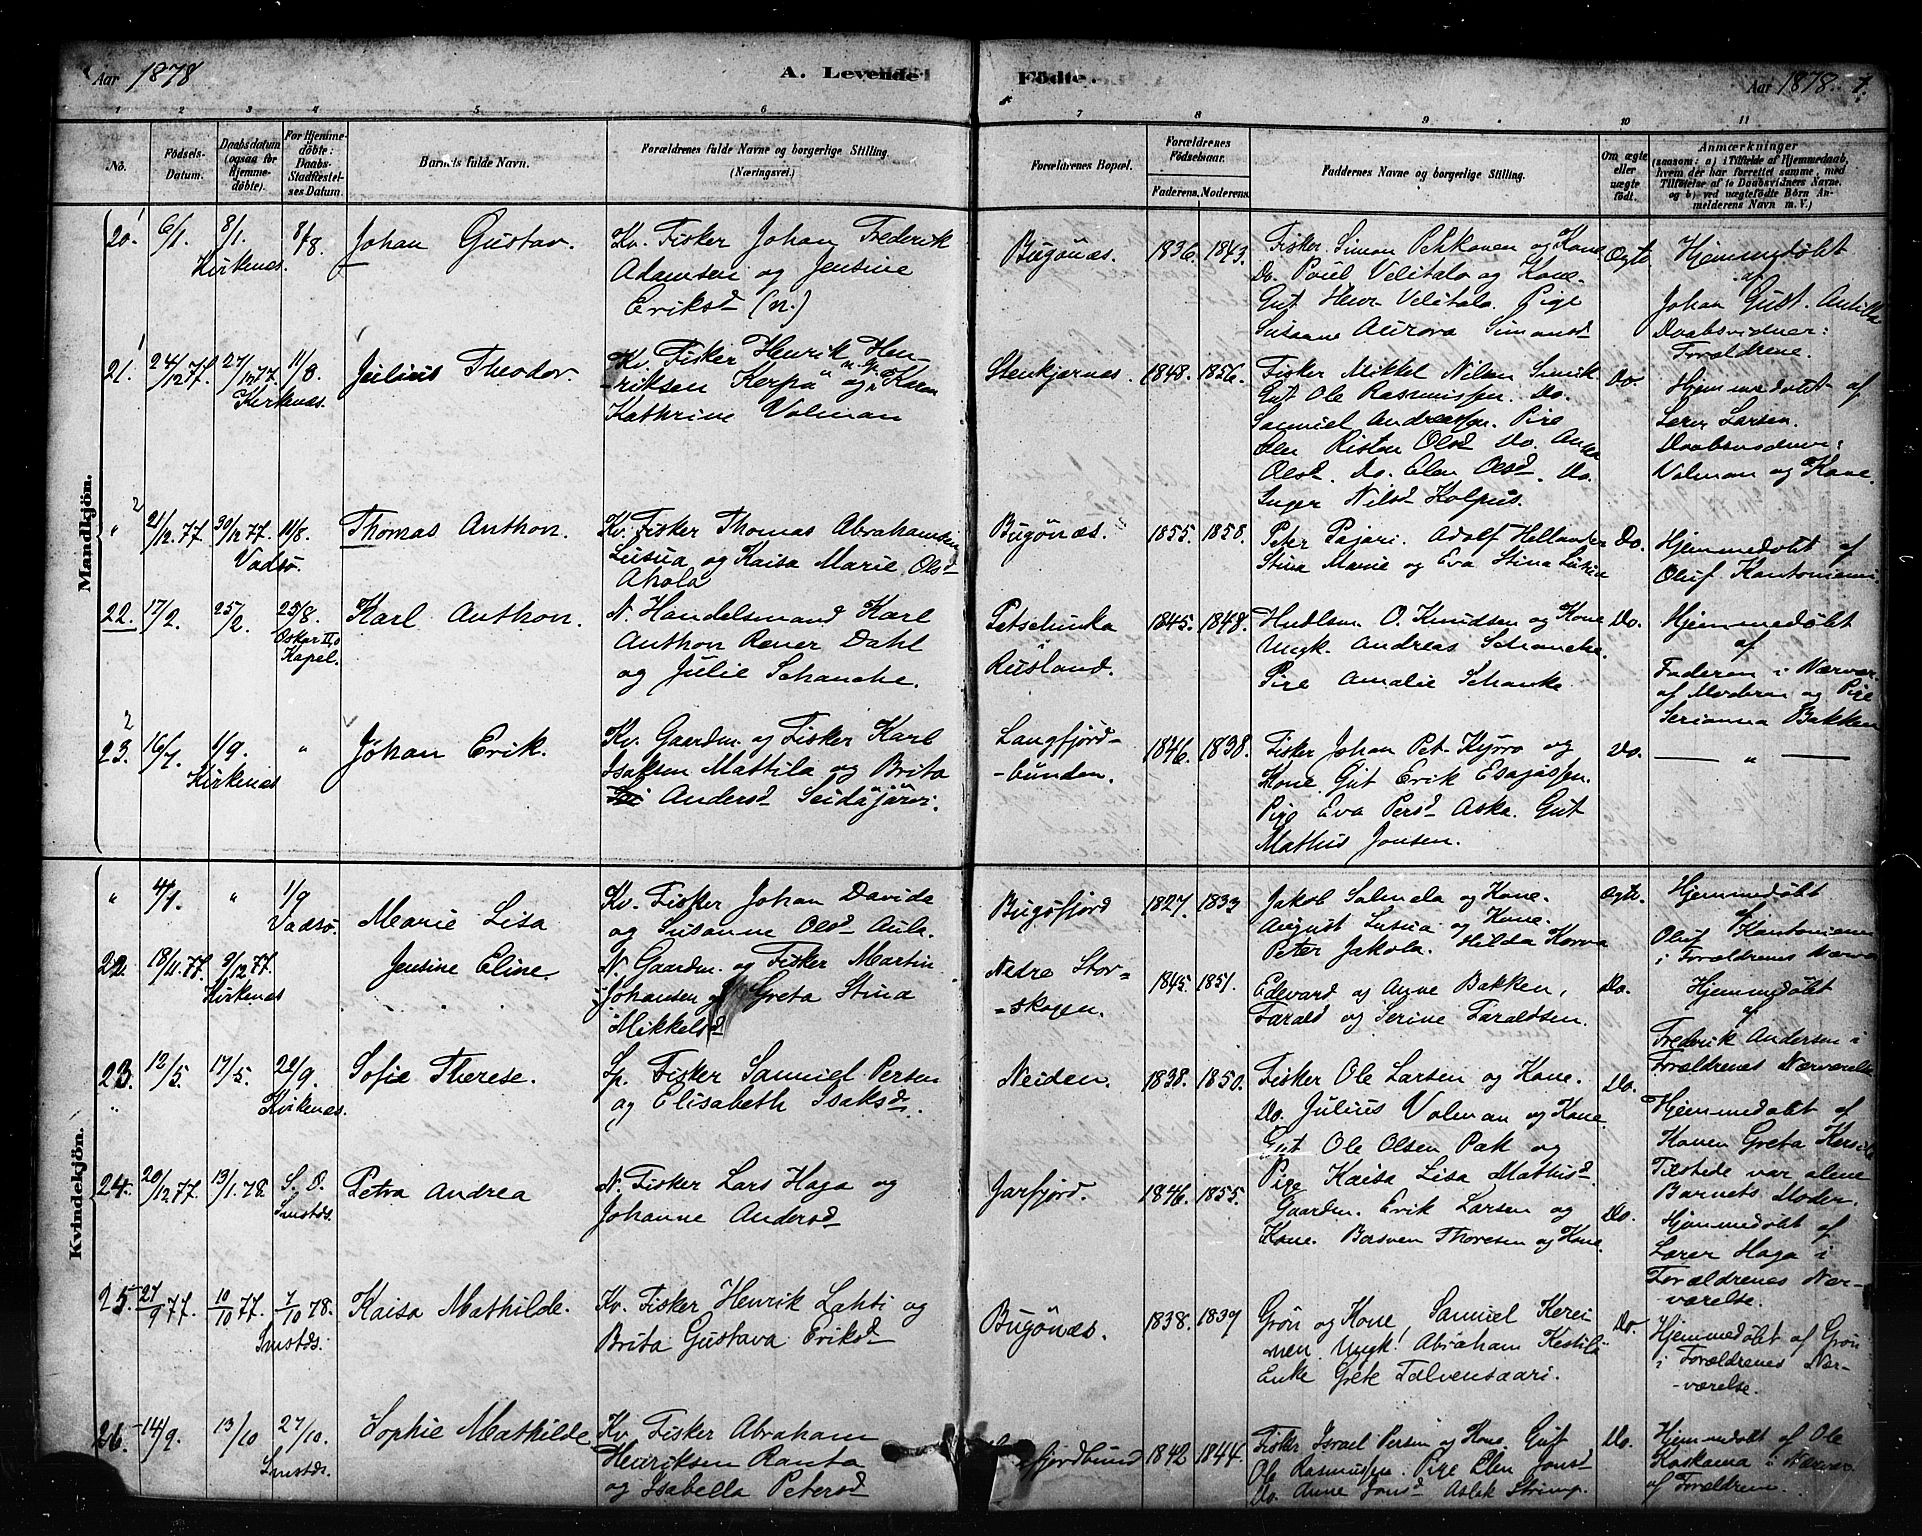 Aar 1878
A. Levende Födte.
Aar 1878. 7.
1 2 3 4 5 6 7 8 9 10 11
No.
Födsels-Datum.
Daabsdatum (ogsaa for Hjemmedöbte).
For Hjemmedöbte: Daabs-Stadfæstelses Datum.
Barnets fulde Navn.
Forældrenes fulde Navne og borgerlige Stilling. (Næringsvei.)
Forældrenes Bopæl.
Forældrenes Födselsaar.
Faderens. Moderens.
Faddernes Navne og borgerlige Stilling.
Om ægte eller uægte födt.
Anmærkninger
(saasom: a) i Tilfælde af Hjemmedaab, hvem der har forrettet samme, med Tilföielse af to Daabsvidners Navne, og b) ved uægtefödte Börn Anmelderens Navn m. V.)
Mandkjön.
20. 6/1. 8/1. Kirkenæs. 8/8. Johan Gustav.
Kv. Fisker Johan Frederik
Adamsen og Jensine
Eriksd (n.)
Bugönæs. 1836. 1843.
Fisker Simon Pehkonen og Kone
Do. Poul Velitalo og Kone.
Gut Henr Velitalo. Pige
Susanne Aurora Simonsd
Ægte
Hjemmedöbt
af
Johan Gust. Antilla
Daabsvidner:
Forældrene.
21. 24/12 77. 27/12 77 Kirkenæs. 11/8 Julius Theodor.
Kv. Fisker Henrik Hen-
-riksen Kerpa og Karen
Kathrine Volman
Stenkjærnes. 1848. 1856.
Fisker Mikkel Nilsen
Gut Ole Rasmussen. Do.
Samuel Andreassen. Pige
Elen Risten Olsd Do. Anna
Olsd. Do. Elen Olsd. Do.
Inger Nilsd Kolpus.
Do.
Hjemmedöbt af
Lærer Larsen.
Daabsvidner:
Volman og Kone.
" 21/12. 77 30/12 77. Vadsö. 11/8. Thomas Anthon.
Kv. Fisker Thomas Abrahamsen
Lusua og Kaisa Marie Olsd
Ahola
Bugönæs. 1855. 1858.
Peter Pajari. Adolf Hellander
Stina Marie og Eva Stina
Do.
Hjemmedöbt af
Oluf Kantoniemi.
22. 17/2. 25/2. 25/8. Oskar II,s Kapel. Karl Anthon.
N. Handelsmand Karl
Anthon Rener Dahl
og Julie Schanche.
Petschinka
Rusland.
1845. 1848.
Hndlsm. O. Knudsen og Kone
Ungk. Andreas Schanche.
Pige Amalie Schanke
Do.
Hjemmedöbt
af
Faderen i Nærvær
af Moderen og Pige
Serianna Bakken
23. 16/7. 1/9. Kirkenæs " Johan Erik.
Kv. Gaardm. og Fisker Karl
Isaksen Mattila og Brita
Andersd Seidäjärvi.
Langfjord-
-bunden.
1846. 1838.
Fisker Johan Pet. Kyrro og
Kone. Gut Erik Esajassen.
Pige Eva Persd Aska. Gut
Mathis Jonsen.
Do.
— " —
Kvindekjön.
" 4/1. " 1/9 Vadsö. Marie Lisa
Kv. Fisker Johan Davida
og Susanne Olsd Aula.
Bugöfjord 1827. 1833
Jakob Salmela og Kone.
August Lusua og Kone.
Peter Jakola. Hilda Korva
Ægte.
Hjemmedöbt
af
Oluf Kantoniemi
i Forældrenes Nærvær
22. 18/11.77. 9/12 77. Kirkenæs Jensine Eline
N. Gaardm. og Fisker Martin
Johansen og Greta Stina
Mikkelsd
Nedre Stor-
-skogen.
1845. 1851.
Edevard og Anne Bakken,
Farald og Serine Faraldsen.
Do.
Hjemmedöbt
af
Fredrik Andersen i
Forældrenes Nærværelse
23. 12/5. 17/5. 22/9. Kirkenæs. Sofie Therese.
Sp. Fisker Samuel Persen
og Elisabeth Isaksd.
Neiden. 1838. 1850.
Fisker Ole Larsen og Kone.
Do. Julius Volman og Kone.
Gut Ole Olsen Pak og
Pige Kaisa Lisa Mathisd.
Do.
Hjemmedöbt af
Konen Greta
Tilstede var alene
Barnets Moder.
24. 20/12 77. 13/1.78. S. D. Smstds. Petra Andrea
N. Fisker Lars Haga og
Johanne Andersd
Jarfjord. 1846. 1855.
Gaardm. Erik Larsen og
Kone. Thoresen og Kone.
Do.
Hjemmedöbt af
Lærer Haga i
Forældrenes Nær-
-værelse.
25. 27/9 77. 10/10 77. 7/10 78. Smstds. Kaisa Mathilde.
Kv. Fisker Henrik Lahti og
Brita Gustava Eriksd
Bugönæs. 1838. 1839
Grön og Kone, Samuel Kerei
nen. Ungk! Abraham Kestilä
Enke Grete Talvensaari.
Do.
Hjemmedöbt af Grön
i Forældrenes Nær-
-værelse.
26. 14/9. 13/10 27/10. Smstds. Sophie Mathilde
Kv. Fisker Abraham
Henriksen Ranta
og Isabella Petersd
fjordbund 1842 1844.
Fisker Israel Persen og Kone. Gut
Ole Rasmussen. Pige Elen Jonsd
Do. Anne Jonsd Aslek Strimp.
Do.
Hjemmedöbt af Ole
Koskama i Nærvær
af Forældrene.